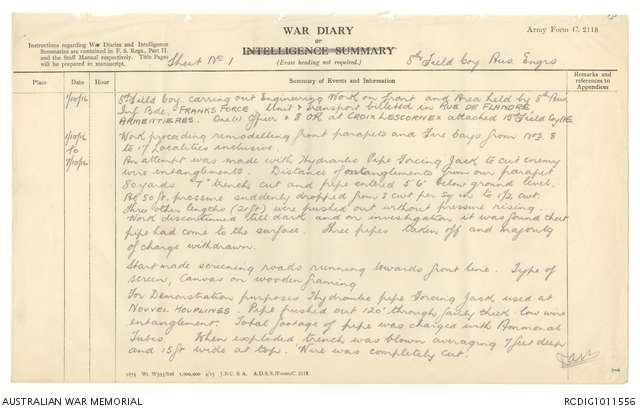 WAR DIARY
or
INTELLIGENCE SUMMARY
(Erase heading not required.)
Army Form C. 2118
Instructions regarding War Diaries and Intelligence
Summaries are contained in F. S. Regs., Part II.
and the Staff Manual respectively. Title Pages
will be prepared in manuscript.
Sheet No 1
5th Field Coy Aus. Engrs
Place
Date
Hour
Summary of Events and Information
Remarks and
references to
Appendices
1/10/16
5th Field Coy. carrying out Engineering Work on front and Area held by 5th Aus.
Inf Bde. FRANKS FORCE Unit & Transport billeted in RUE DE FLANDRE
ARMENTIERES. One officer & 8 OR at CROIX LESCORNEX attached 15th Field Coy
1/10/16
to
7/10/16
Work proceeding remodelling front parapets and Fire bays from Nos. 8
to 17 Localities inclusive.
An attempt was made with Hydraulic Pipe Forcing Jack to cut enemy
wire entanglements. Distance of entanglements from our parapet
80 yards "T" trench cut and pipe entered 5'6" below ground level.
At 50 ft. pressure suddenly dropped from 3 cwt per sq in to 1½ cwt.
Three other lengths (20ft) were pushed out without pressure rising.
Work discontinued till dark and on investigation it was found that
pipe had come to the surface. Three pipes taken off and majority
of charge withdrawn.
Start made screening roads running towards front line. Type of
screen, Canvas on wooden framing
For Demonstration purposes Hydraulic pipe Forcing Jack used at
NOUVEL HOUPLINES. Pipe pushed out 120' through fairly thick low wire
entanglement. Total footage of pipe was charged with Ammonal
Tubes. When exploded trench was blown averaging 7 feet deep
and 15 ft wide at top. Wire was completely cut.
1875 Wt. W593/826 1,000,000 4/15 J.B.C. & A. A.D.S.S./Forms/C. 2118.
AUSTRALIAN WAR MEMORIAL
RCDIG1011556